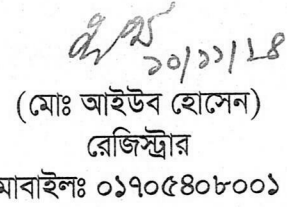 ১০/১১/২৪
(মোঃ আইউব হোসেন)
রেজিস্ট্রার
মাবাইলঃ ০১৭০৫৪০৮০০১